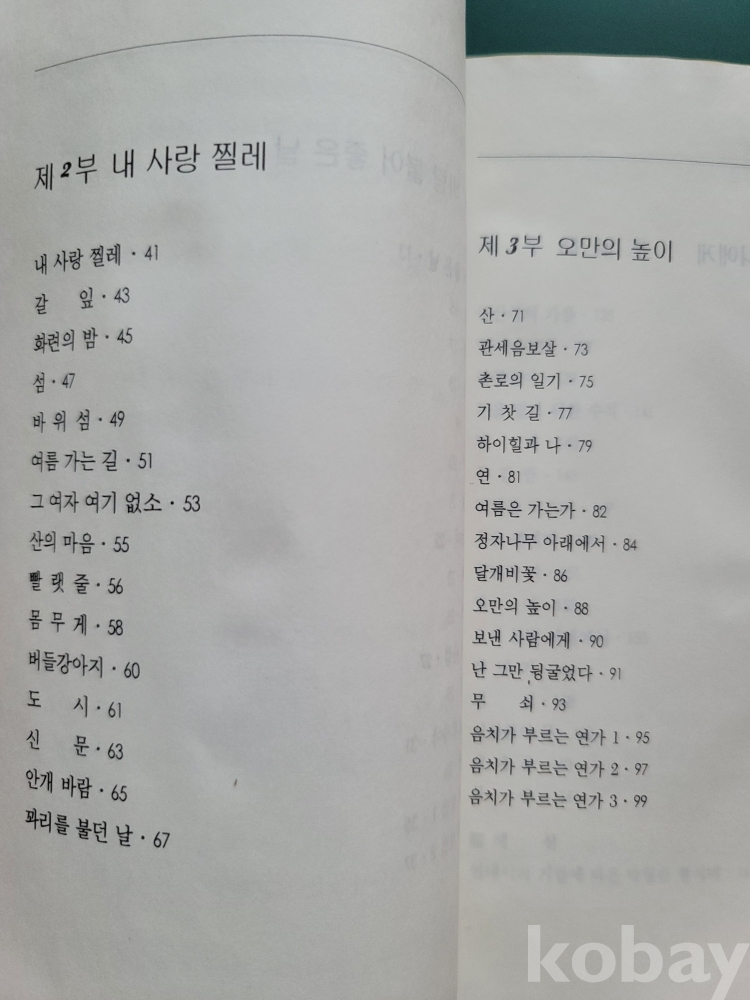 제2부 내 사랑 찔레
내 사랑 찔레 · 41
갈 잎 · 43
화련의 밤 · 45
섬 · 47
바 위 섬 · 49
여름 가는 길 · 51
그 여자 여기 없소 · 53
산의 마음 · 55
빨 랫 줄 · 56
몸 무 게 · 58
버들강아지 · 60
도 시 · 61
신 문 · 63
안개 바람 · 65
꽈리를 불던 날 · 67
제3부 오만의 높이
산 · 71
관세음보살 · 73
촌로의 일기 · 75
기 찻 길 · 77
하이힐과 나 · 79
연 · 81
여름은 가는가 · 82
정자나무 아래에서 · 84
달개비꽃 · 86
오만의 높이 · 88
보낸 사람에게 · 90
난 그만 뒹굴었다 · 91
무 쇠 · 93
음치가 부르는 연가 1 · 95
음치가 부르는 연가 2 · 97
음치가 부르는 연가 3 · 99
kobay